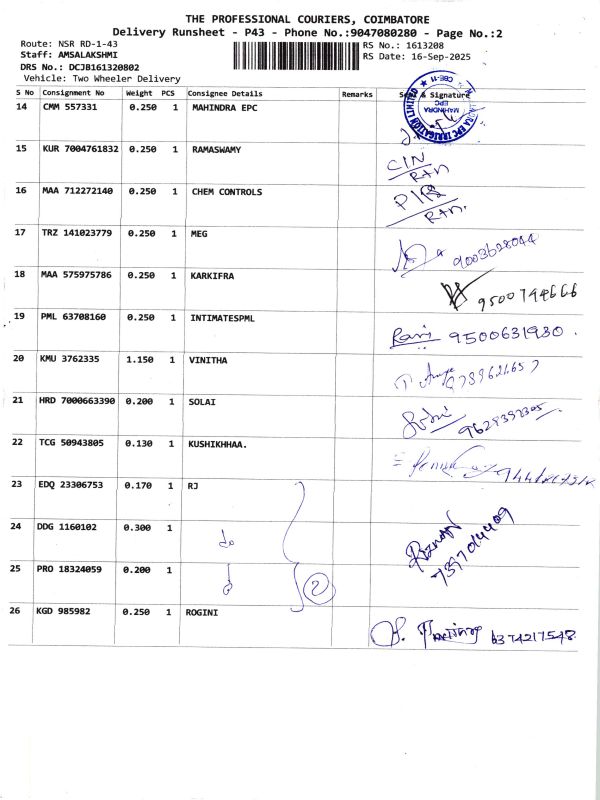 THE PROFESSIONAL COURIERS, COIMBATORE
Delivery Runsheet - P43 - Phone No.:9047080280 - Page No.:2
Route: NSR RD-1-43
RS No.: 1613208
Staff: AMSALAKSHMI
RS Date: 16-Sep-2025
DRS No.: DCJB161320802
Vehicle: Two Wheeler Delivery
S No Consignment No Weight PCS Consignee Details Remarks & Signature
14 CMM 557331 0.250 1 MAHINDRA EPC
MAHINDRA EPC IRRIGATION LIMITED
MAHINDRA
EPC
CBE-11
15 KUR 7004761832 0.250 1 RAMASWAMY
CIN
RAN
16 MAA 712272140 0.250 1 CHEM CONTROLS
RAN.
17 TRZ 141023779 0.250 1 MEG
9003628044
18 MAA 575975786 0.250 1 KARKIFRA
9500744666
19 PML 63708160 0.250 1 INTIMATESPML
Ravi 9500631930.
20 KMU 3762335 1.150 1 VINITHA
21 HRD 7000663390 0.200 1 SOLAI
22 TCG 50943805 0.130 1 KUSHIKHHAA.
23 EDQ 23306753 0.170 1 RJ
24 DDG 1160102 0.300 1 do
25 PRO 18324059 0.200 1
2
7397044409
26 KGD 985982 0.250 1 ROGINI
6374217548